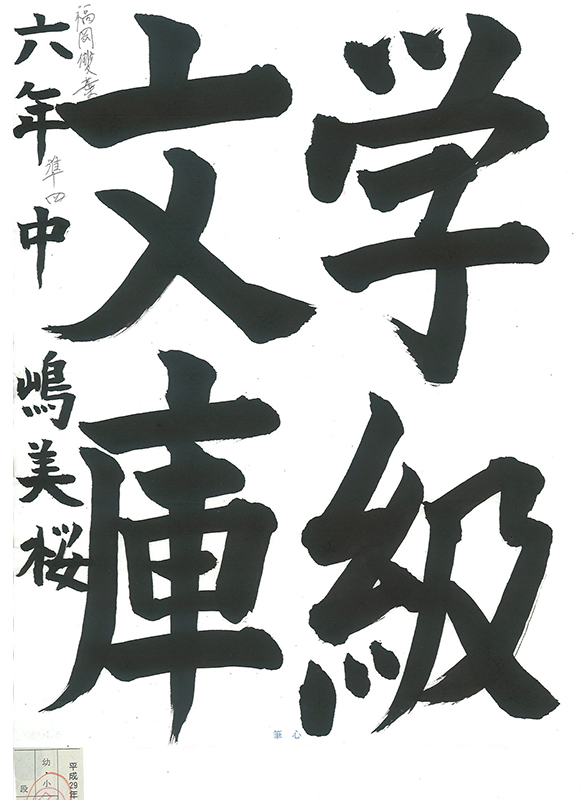 学級
文庫
六年 中嶋美桜
福岡
準四
心筆
平成29年
幼・小
段